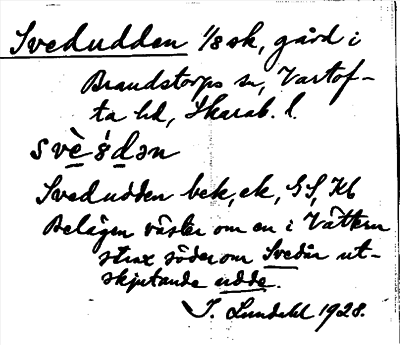 Svedudden 1/8 sk, gård i
Brandstorps sn, Vartof-
ta hd, Skarab. l.
Svedudden bek, ek, GS, Kb
Belägen väster om en i Vättern
strax söder om Svedån ut-
skjutande udde.
I. Lundahl 1928.